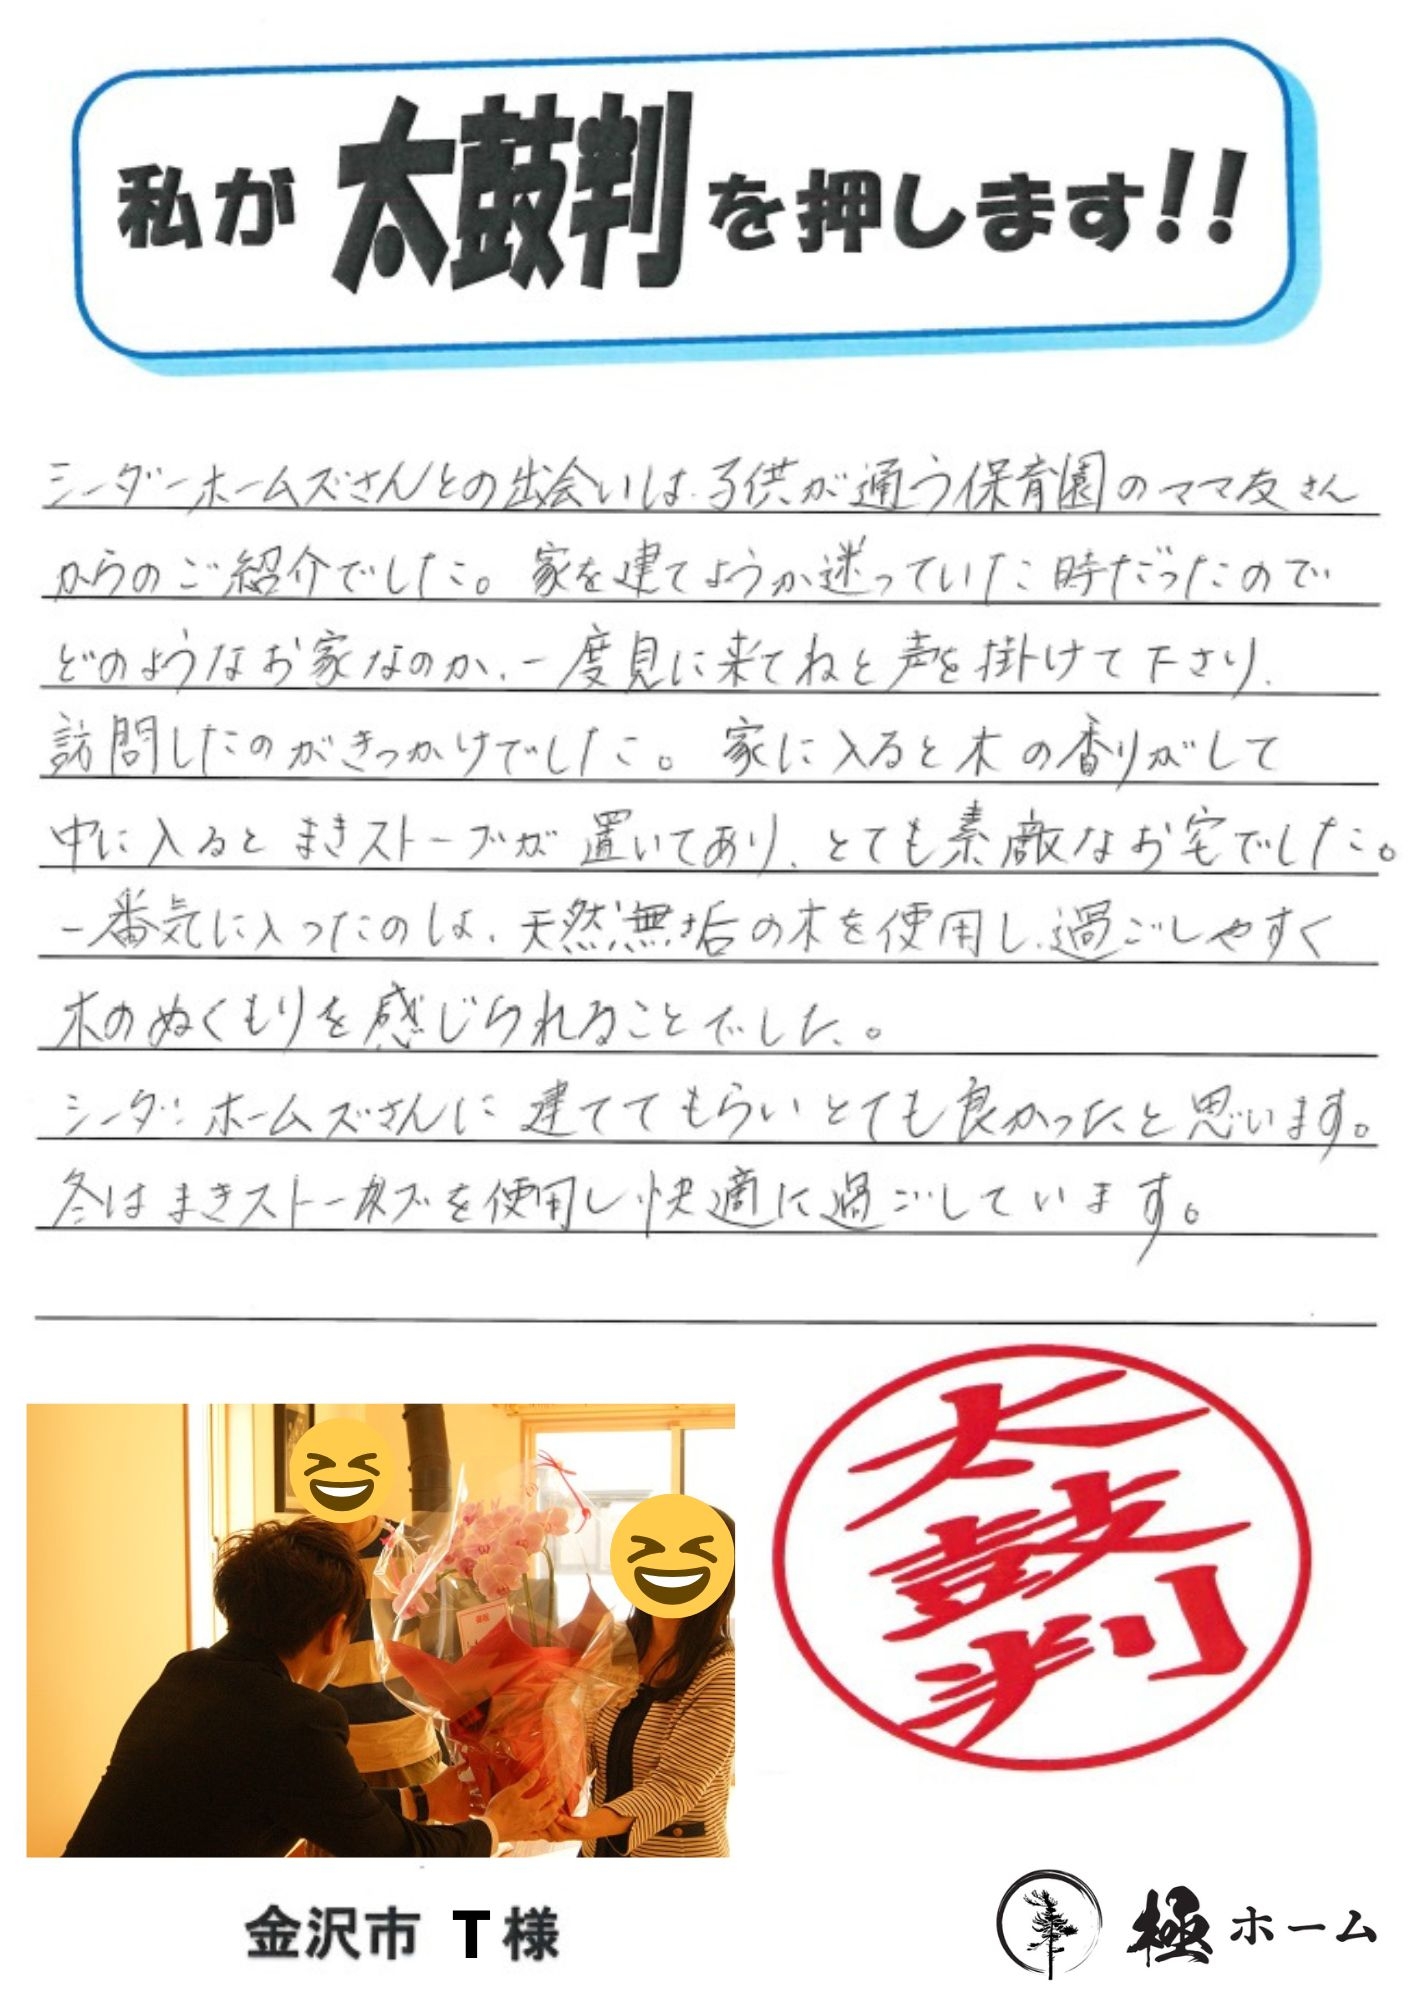 私が太鼓判を押します!!
シーダーホームズさんとの出会いは、子供が通う保育園のママ友さん
からのご紹介でした。家を建てようか迷っていた時だったので
どのようなお家なのか、一度見に来てねと声を掛けて下さり、
訪問したのがきっかけでした。家に入ると木の香りがして
中に入るとまきストーブが置いてあり、とても素敵なお宅でした。
一番気に入ったのは、天然無垢の木を使用し、過ごしやすく
木のぬくもりを感じられることでした。
シーダーホームズさんに建ててもらいとても良かったと思います。
冬はまきストーブを使用し快適に過ごしています。
太鼓判
金沢市 T様
極ホーム